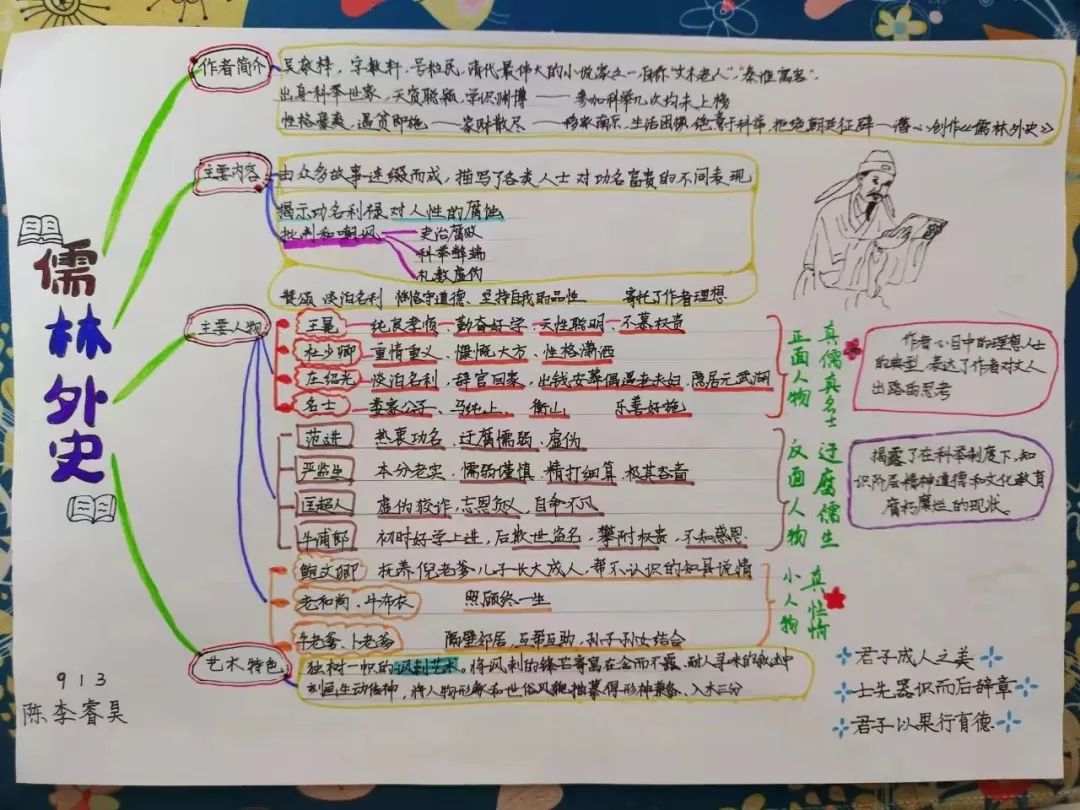 儒林外史
作者简介
吴敬梓，字敏轩，号粒民，清代最伟大的小说家之一，自称"文木老人"，"秦淮寓客"．
出身科举世家，天资聪颖，学识渊博 —— 参加科举几次均未上榜
性格豪爽，遇贫即施 —— 家财散尽 —— 移家南京，生活困顿，绝意于科举，拒绝朝廷征辟—潜心创作《儒林外史》
主要内容
由众多故事连缀而成，描写了各类人士对功名富贵的不同表现
揭示功名利禄对人性的腐蚀
批判和嘲讽
吏治腐败
科举弊端
礼教虚伪
赞颂 淡泊名利 恪守道德、坚持自我的品性 寄托了作者理想
主要人物
王冕 — 纯良孝悌 — 勤奋好学 — 天性聪明 — 不慕权贵
杜少卿 — 重情重义、慷慨大方、性格潇洒
庄绍光 — 淡泊名利，辞官回家，出钱安葬偶遇老夫妇，隐居元武湖
名士 — 娄家公子、马纯上、 衡山 乐善好施
正面人物
真儒真名士
作者心目中的理想人士的典型，表达了作者对文人出路的思考
范进 热衷功名，迂腐懦弱，虚伪
严监生 本分老实，懦弱谨慎，精打细算，极其吝啬
匡超人 虚伪狡诈，忘恩负义，自命不凡
牛浦郎 初时好学上进，后欺世盗名，攀附权贵，不知感恩．
反面人物
迂腐儒生
揭露了在科举制度下，知识阶层精神道德和文化教育腐朽糜烂的现状。
鲍文卿 抚养倪老爹儿子长大成人，帮不认识的知县说情
老和尚、牛布衣 照顾终一生
牛老爹、卜老爹 隔壁邻居，互帮互助，孙子孙女结合
小人物
真性情
艺术特色
独树一帜的讽刺艺术。将讽刺的锋芒寄寓在含而不露、耐人寻味的叙述中
刻画生动传神，将人物形象和世俗风貌描摹得形神兼备、入木三分
君子成人之美
士先器识而后辞章
君子以果行育德
913
陈李睿昊